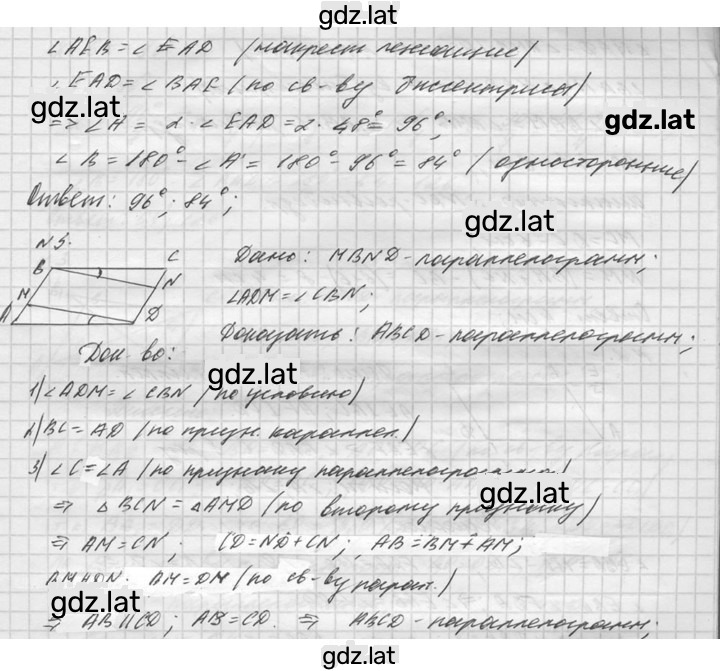 gdz.lat
∠AEB = ∠EAD (накрест лежащие)
∠EAD = ∠BAE (по св-ву биссектрисы)
gdz.lat
gdz.lat
=> ∠A = 2·∠EAD = 2·48° = 96°;
∠B = 180° - ∠A = 180° - 96° = 84° (односторонние)
Ответ: 96°; 84°;
gdz.lat
N5.
B C
M N
A D
Дано: MBND - параллелограмм;
∠ADM = ∠CBN;
Доказать: ABCD - параллелограмм;
Док-во:
gdz.lat
1) ∠ADM = ∠CBN (по условию)
2) BC = AD (по призн. параллел.)
3) ∠C = ∠A (по признаку параллелограмма)
gdz.lat
=> △BCN = △AMD (по второму признаку)
=> AM = CN; CD = ND + CN; AB = BM + AM;
AM = DM (по св-ву парал.)
gdz.lat
=> AB || CD; AB = CD. => ABCD - параллелограмм;
gdz.lat